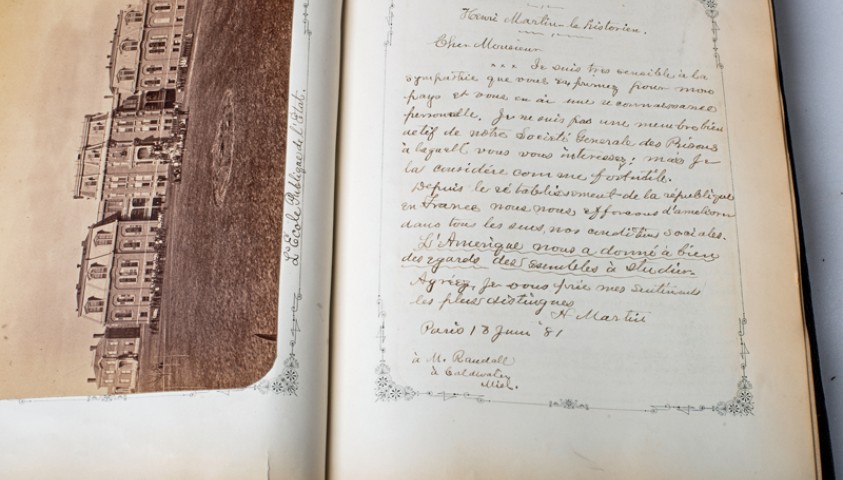 L'École Publique de l'Etat.
Henri Martin le historien.
Cher Monsieur
" " " Je suis très sensible à la
sympathie que vous exprimez pour mon
pays et vous en ai une reconnaissance
personelle. Je ne suis pas une membre bien
actif de notre Société Generale des Prisons
à laquell vous vous interessez; mais je
la considère comme fort utile.
Depuis le rétablissement de la république
en France nous nous efforsons d'ameliorer
dans tous les sens, nos conditions sociales.
L'Amerique nous a donné à bien
des egards des exembles à studier.
Agriez, je vous prie mes sentiments
les plus distingues
H Martin
Paris 18 Juni '81
à M. Randall
à Coldwater
Mich.